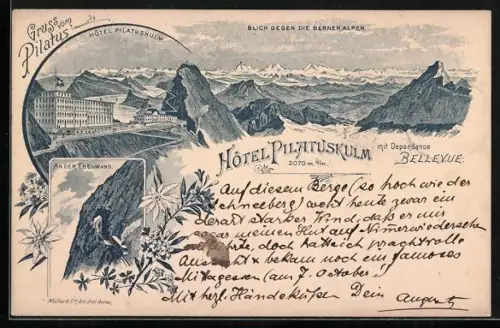 Gruss vom
Pilatus
HÔTEL PILATUSKULM.
BLICK GEGEN DIE BERNER ALPEN.
HÔTEL PILATUSKULM
2070 m. ü/m.
mit Dependance
BELLEVUE.
AN DER ESELWAND.
Auf diesem Berge (so hoch wie der
Schneeberg) weht heute zwar ein
derart starker Wind, daß er mir
meinen Hut auf Nimmerwiedersehen
, doch hatte ich prachtvolle
Aussicht & bekam noch ein famoses
Mittagessen (am 7. October!)
Mit herzl. Handeküßen Dein August
Müller & Cie